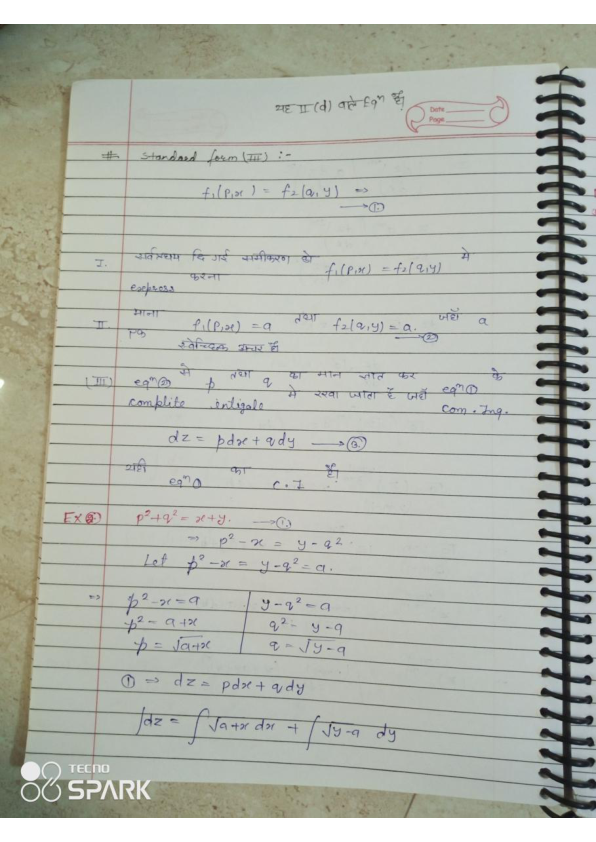 यह II (d) वाले Eqⁿ है।
Date
Page
# Standard form (III) :-
f₁(P,x) = f₂(q,y) ⇒
→①
I. सर्वप्रथम दि गई समीकरण को f₁(P,x) = f₂(q,y) मे
express करना
II. माना f₁(P,x) = a तथा f₂(q,y) = a. जहाँ a
→②
एक स्वेच्छिक अचर है
(III) eqⁿ② से p तथा q का मान ज्ञात कर के
complite intigale मे रखा जाता है जहाँ eqⁿ① com. Ing.
dz = pdx + qdy →③
यही eqⁿ① का C.I है।
EX p² + q² = x + y. →①
⇒ p² - x = y - q²
Let p² - x = y - q² = a.
⇒ p² - x = a y - q² = a
p² = a + x q² = y - a
p = √a+x q = √y-a
① ⇒ dz = pdx + qdy
∫dz = ∫√a+x dx + ∫√y-a dy
TECNO
SPARK